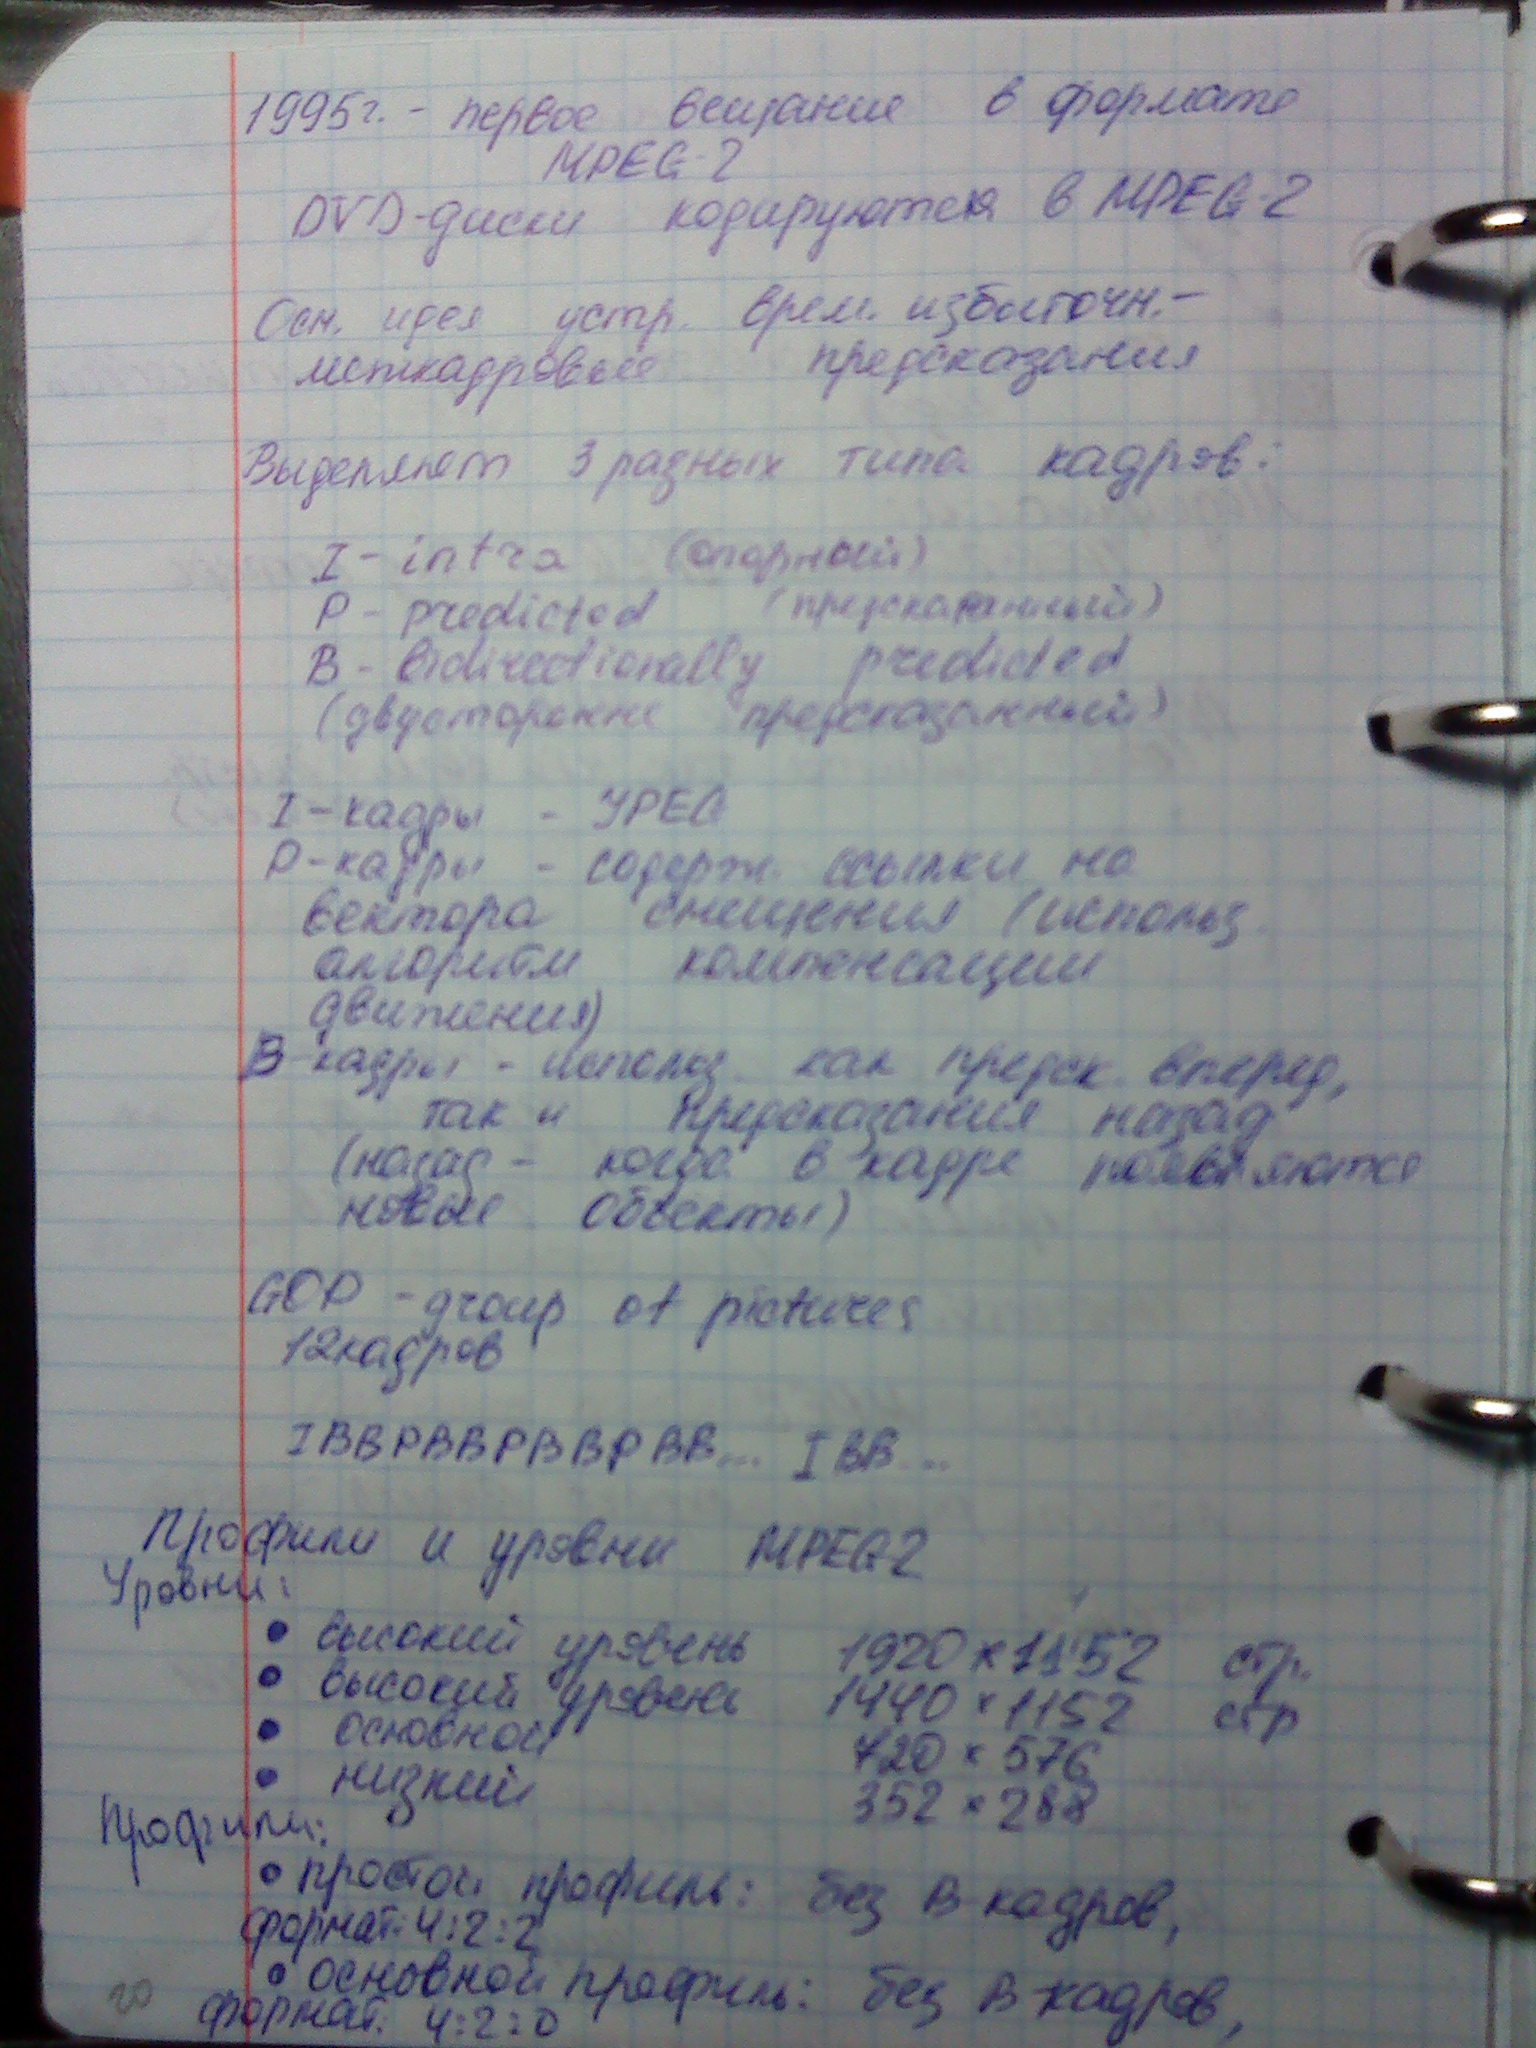 1995г. - первое вещание в формате
MPEG-2
DVD-диски кодируются в MPEG-2
Осн. идея устр. врем. избыточн. -
межкадровые предсказания
Выделяют 3 разных типа кадров:
I - intra (опорный)
P - predicted (предсказанный)
B - bidirectionally predicted
(двусторонне предсказанный)
I - кадры - JPEG
P-кадры - содерж. ссылки на
вектора смещения (использ.
алгоритм компенсации
движения)
B-кадры - использ. как предск. вперед,
так и предсказания назад
(назад - когда в кадре появляются
новые объекты)
GOP - group of pictures
12 кадров
IBBPBBPBBPBB... IBB...
Профили и уровни MPEG-2
Уровни:
• высокий уровень 1920 × 1152 стр.
• высокий уровень 1440 × 1152 стр
• основной 720 × 576
• низкий 352 × 288
Профили:
• простой профиль: без B-кадров,
формат: 4:2:2
• основной профиль: без B-кадров,
формат: 4:2:0
20